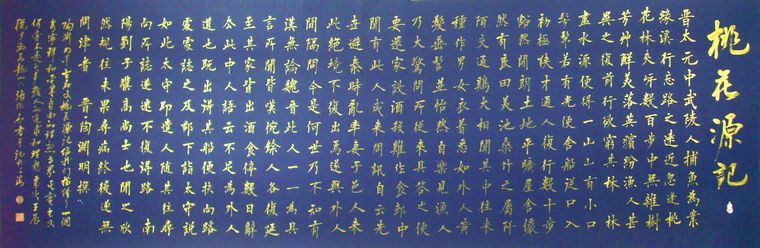 桃花源記
晉太元中武陵人捕魚為業
緣溪行忘路之遠近忽逢桃
花林夾岸數百步中無雜樹
芳艸鮮美落英繽紛漁人甚
異之復前行欲窮其林林
盡水源便得一山山有小口
髣髴若有光便舍船從口入
初極狹才通人復行數十步
豁然開朗土地平曠屋舍儼
然有良田美池桑竹之屬阡
陌交通鷄犬相聞其中往來
種作男女衣着悉如外人黃
髮垂髫並怡然自樂見漁人
乃大驚問所從來具答之便
要還家設酒殺雞作食邨中
聞有此人咸來問訊自云先
世避秦時亂率妻子邑人來
此絕境不復出焉遂與外人
間隔問今是何世乃不知有
漢無論魏晉此人一一為具
言所聞皆嘆惋餘人各復延
至其家皆出酒食停數日辭
去此中人語云不足為外人
道也既出得其船便扶向路
處處誌之及郡下詣太守說
如此太守即遣人隨其往尋
向所誌遂迷不復得路 南
陽劉子驥高尚士也聞之欣
然規往未果尋病終後遂無
問津者 晉·陶淵明撰